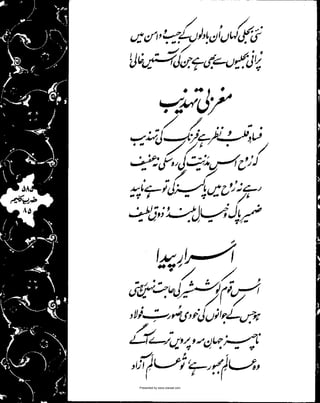 نئی بجلی کہاں ان بادلوں کے جیب و دامن میں
پرانی بجلیوں سے بھی ہے جن کی آستیں خالی!
مغربی تہذیب
فسادِ قلب و نظر ہے فرنگ کی تہذیب
کہ روح اس مدنیّت کی رہ سکی نہ عفیف
رہے نہ روح میں پاکیزگی تو ہے ناپید
ضمیرِ پاک و خیالِ بلند و ذوقِ لطیف
اسرارِ پیدا
اُس قوم کو شمشیر کی حاجت نہیں رہتی
ہو جس کے جوانوں کی خودی صورتِ فولاد
ناچیز جہانِ مہ و پرویں ترے آگے
وہ عالمِ مجبور ہے، تو عالمِ آزاد
۵۸۵
ضربِ کلیم
۸۵